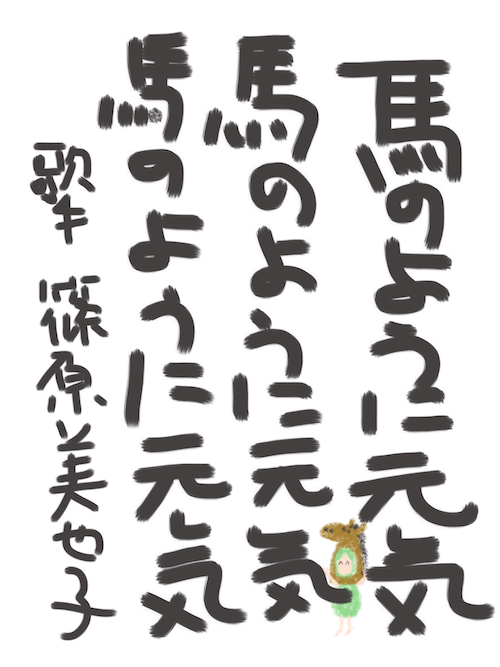 馬のように元気
馬のように元気
馬のように元気
歌 篠原美也子